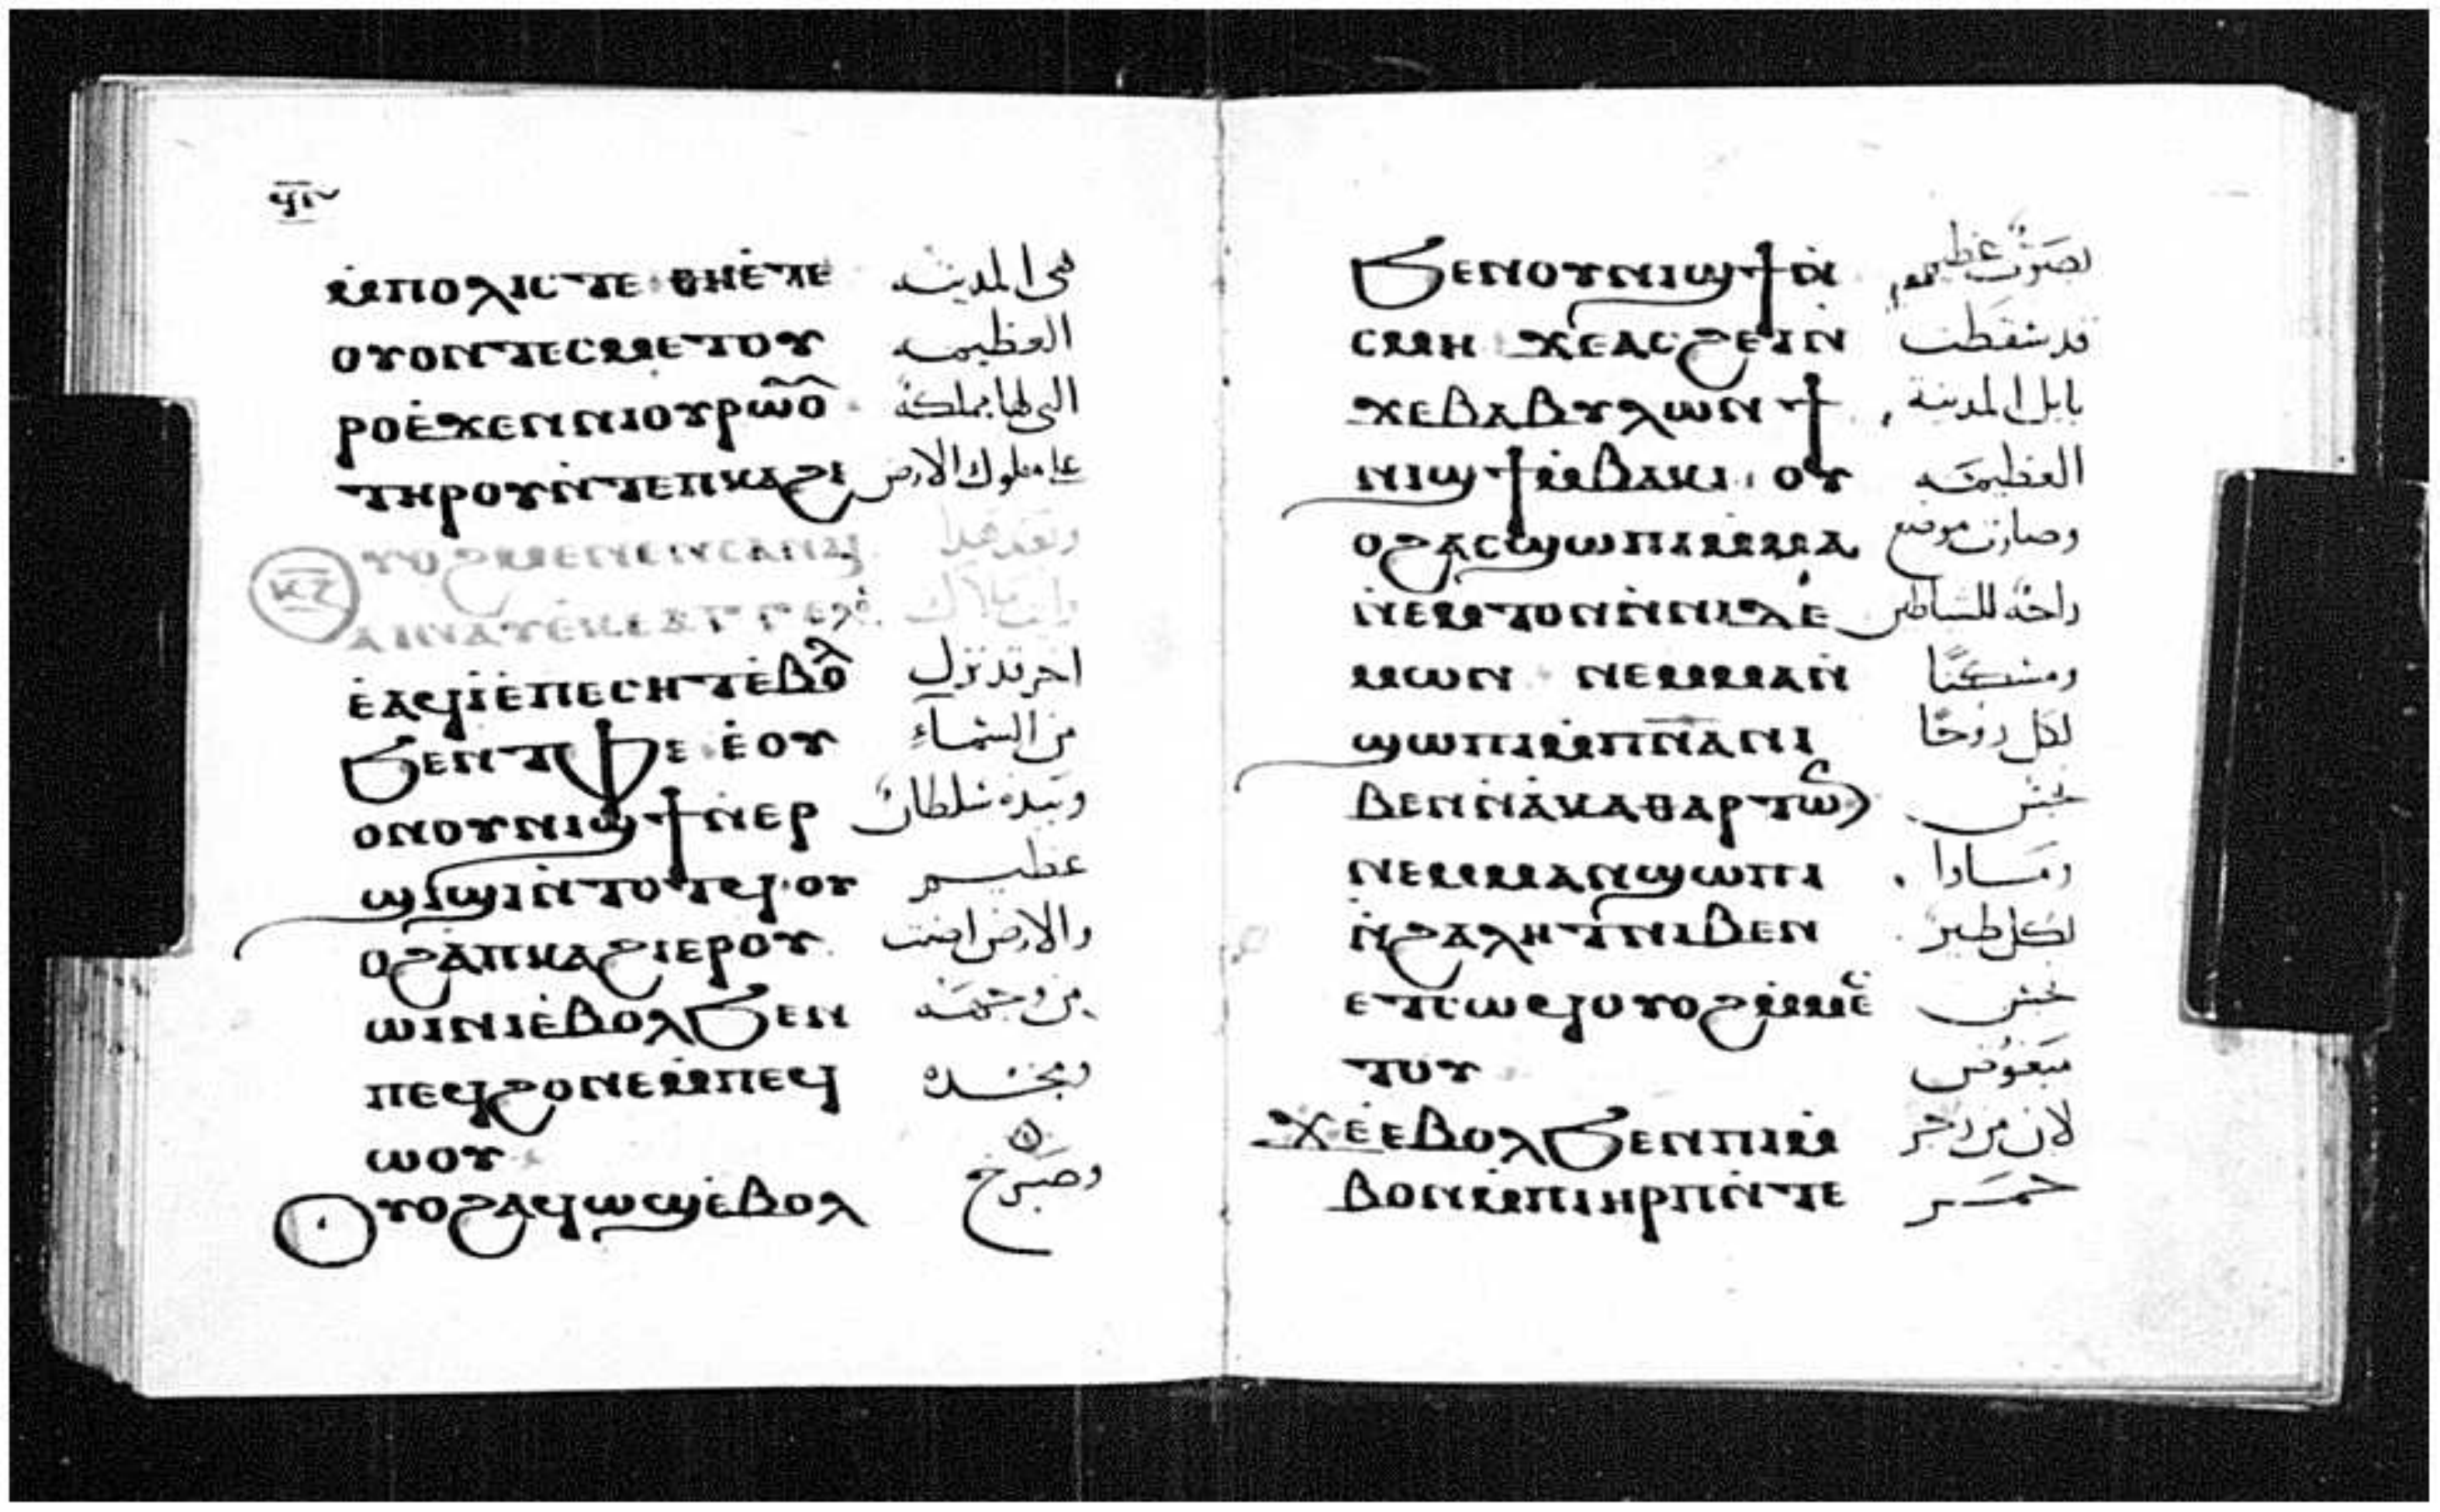 ϥⲓ
ⲙ̇ⲡⲟⲗⲓⲥ ⲧⲉ ⲑⲏⲉ̇ⲧⲉ هى المدينه
ⲟⲩⲟⲛⲧⲉⲥⲙⲉⲧⲟⲩ العظيمه
ⲣⲟⲉ̇ϫⲉⲛⲛⲓⲟⲩⲣⲱⲟⲩ التى لها مملكة
ⲧⲏⲣⲟⲩⲛ̇ⲧⲉⲡⲕⲁϩⲓ على ملوك الارض
ⲟⲩⲟϩⲙⲉⲛⲉⲛⲥⲁⲛⲁⲓ وبعد هذا
ⲕ̅ⲍ̅
ⲁⲓⲛⲁⲩⲉ̇ⲕⲉⲁⲅⲅⲉⲗⲟⲥ رايت ملاك
ⲉ̇ⲁϥⲓ̇ⲉ̇ⲡⲉⲥⲏⲧⲉ̇ⲃⲟⲗ اخر قد نزل
ϧⲉⲛⲧⲫⲉ ⲉ̇ⲟⲩ من السمآء
ⲟⲛⲟⲩⲛⲓϣϯⲛ̇ⲉⲣ وبيده سلطان
ϣⲓϣⲓⲛ̇ⲧⲟⲧϥ ⲟⲩ عظيم
ⲟϩⲁ̇ⲡⲕⲁϩⲓⲉⲣⲟⲩ والارض اضت
ⲱⲓⲛⲓⲉ̇ⲃⲟⲗϧⲉⲛ من وجهه
ⲡⲉϥϩⲟⲛⲉⲙ̇ⲡⲉϥ ومجده
ⲱⲟⲩ
ⲟⲩⲟϩⲁϥⲱϣⲉ̇ⲃⲟⲗ وصرخ
ϧⲉⲛⲟⲩⲛⲓϣϯⲛ̇ بصوت عظيم
ⲥⲙⲏ ϫⲉⲁⲥϩⲉⲓⲛ̇ قد سقطت
ϫⲉⲃⲁⲃⲩⲗⲱⲛ ϯ بابل المدينة
ⲛⲓϣϯⲙ̇ⲃⲁⲕⲓ ⲟⲩ العظيمه
ⲟϩⲁⲥϣⲱⲡⲓⲙ̇ⲙⲁ وصارت موضع
ⲛ̇ⲉⲙⲧⲟⲛⲛ̇ⲛⲓⲇⲉ̇ راحة للشياطين
ⲙⲱⲛ ⲛⲉⲙⲙⲁⲛ̇ ومسكنًا
ϣⲱⲡⲓⲙ̇ⲡ̅ⲛ̅ⲁ̅ⲛⲓ لكل روحًا
ⲃⲉⲛⲛ̇ⲁ̇ⲕⲁⲑⲁⲣⲧⲱⲛ نجس
ⲛⲉⲙⲙⲁⲛϣⲱⲡⲓ ومساوا
ⲛ̇ϩⲁⲗⲏⲧⲛⲓⲃⲉⲛ لكل طير
ⲉⲧⲥⲱϥⲟⲩⲟϩⲙ̇ⲙⲉⲥ نجس
ⲧⲟⲩ مبغوض
ϫⲉⲉⲃⲟⲗϧⲉⲛⲡⲓⲙ̇ لان من رجز
ⲃⲟⲛⲙ̇ⲡⲓⲏⲣⲡⲛ̇ⲧⲉ خمر